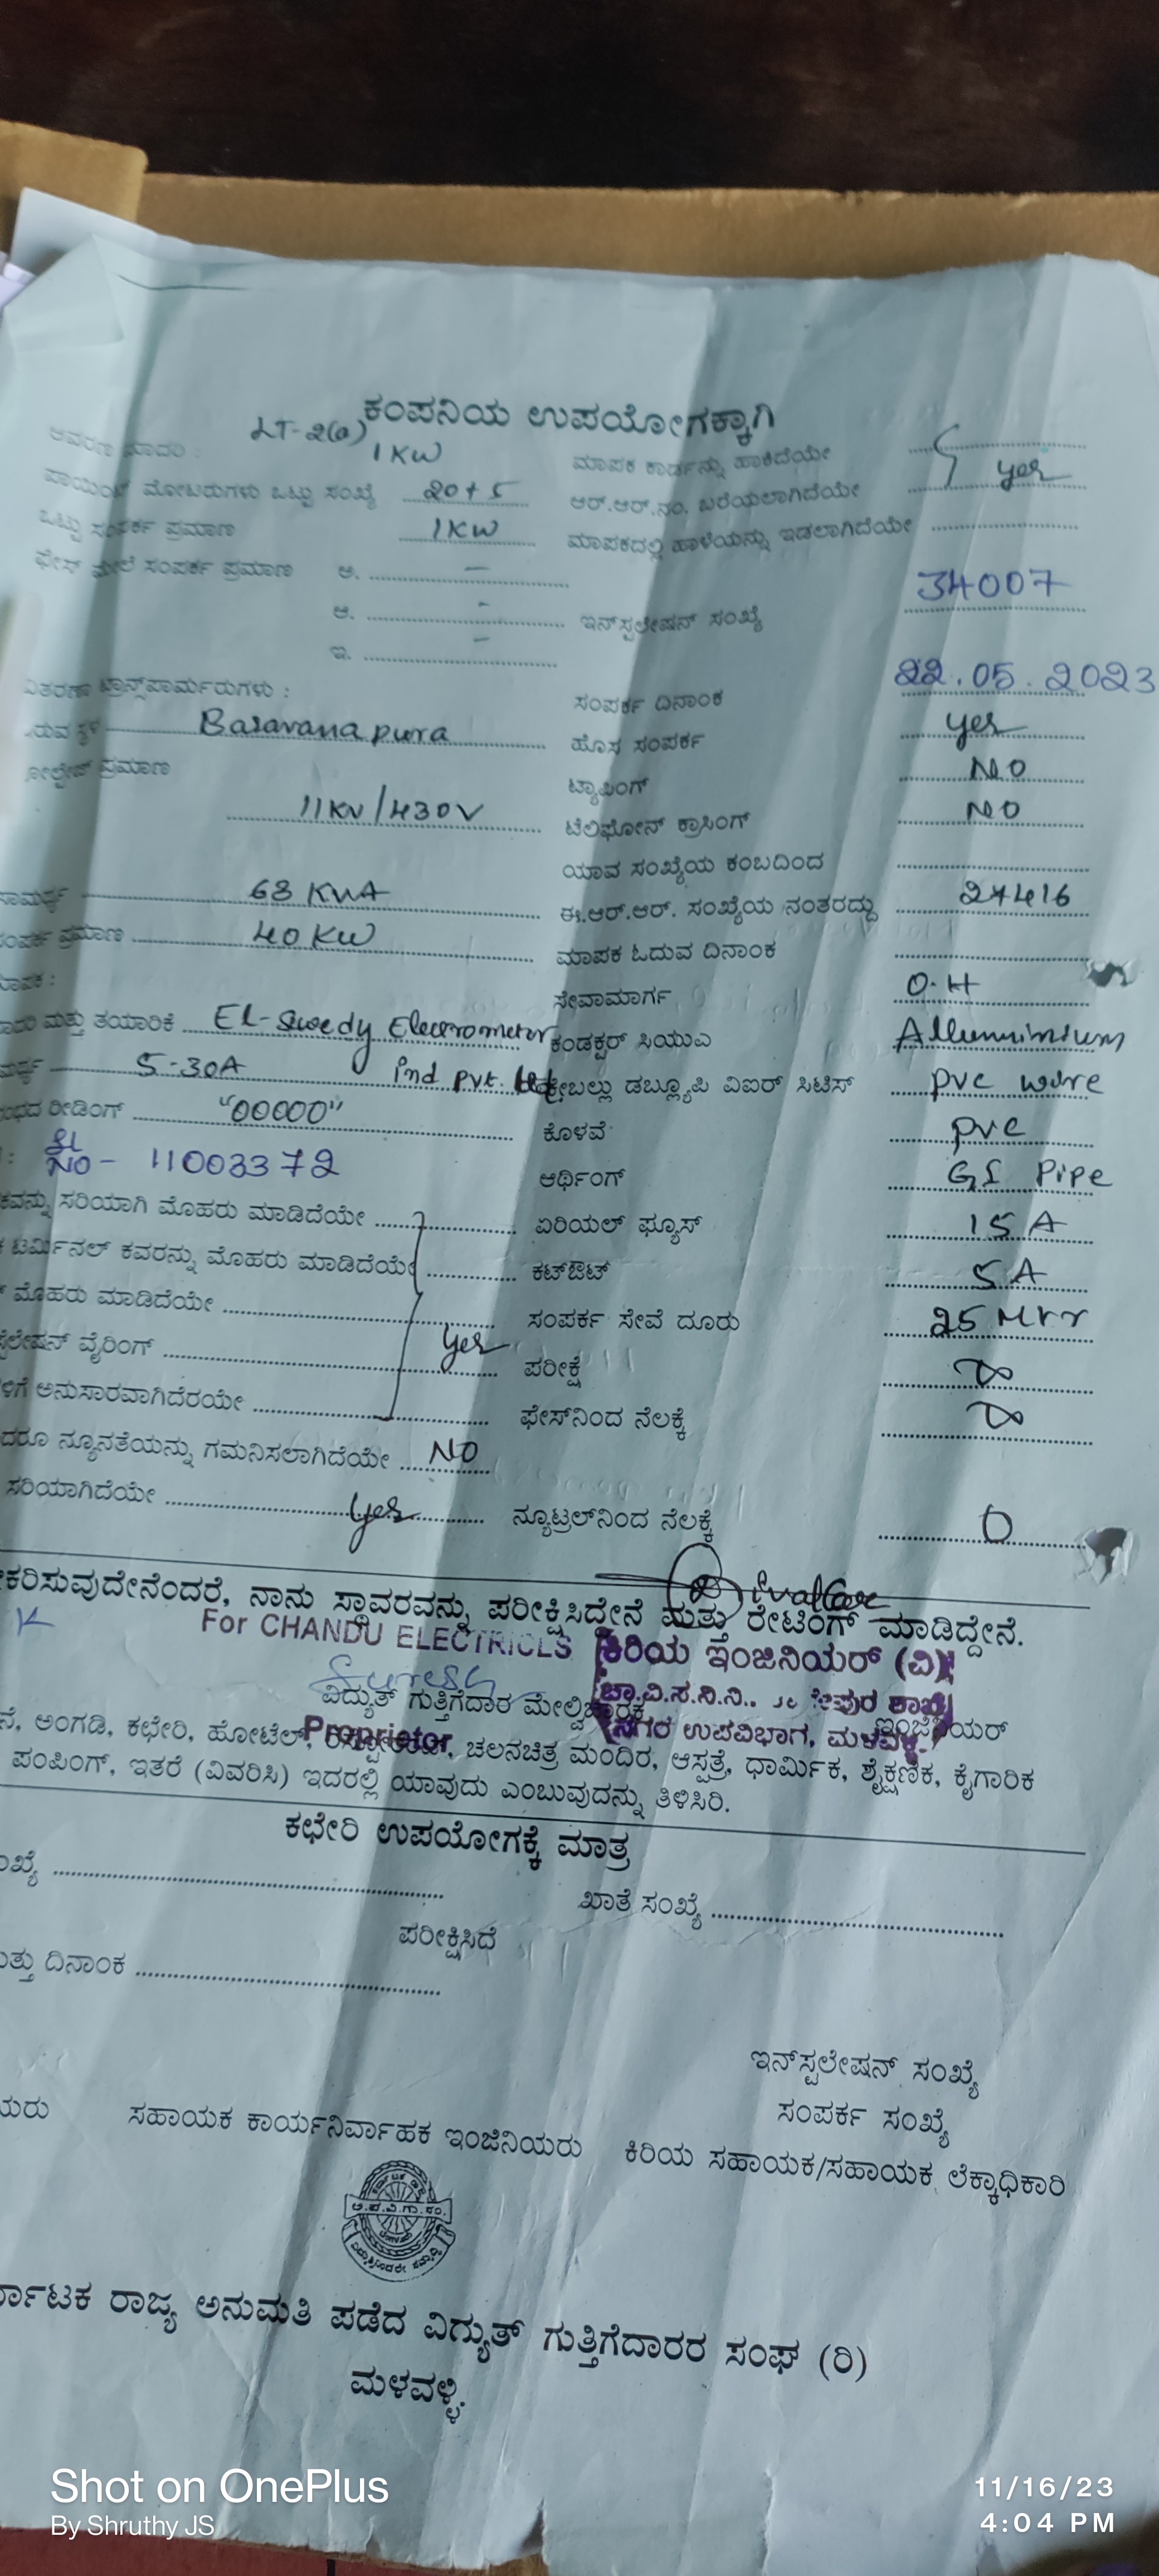 ಕಂಪನಿಯ ಉಪಯೋಗಕ್ಕಾಗಿ
LT-2(a) 1KW
ಮಾಪಕ ಕಾರ್ಡನ್ನು ಹಾಕಿದೆಯೇ
ಪಾಯಿಂಟ್ ಮೋಟರುಗಳು ಒಟ್ಟು ಸಂಖ್ಯೆ 20+5 ಆರ್.ಆರ್.ನಂ. ಬರೆಯಲಾಗಿದೆಯೇ yes
ಒಟ್ಟು ಸಂಪರ್ಕ ಪ್ರಮಾಣ 1KW ಮಾಪಕದಲ್ಲಿ ಹಾಳೆಯನ್ನು ಇಡಲಾಗಿದೆಯೇ
ಫೇಸ್ ಮೇಲೆ ಸಂಪರ್ಕ ಪ್ರಮಾಣ ಅ. -
ಆ. - ಇನ್‌ಸ್ಟಲೇಷನ್ ಸಂಖ್ಯೆ 34007
ಇ. -
ಟ್ರಾನ್ಸ್‌ಫಾರ್ಮರುಗಳು : ಸಂಪರ್ಕ ದಿನಾಂಕ 22.05.2023
Basavanapura ಹೊಸ ಸಂಪರ್ಕ yes
ಪ್ರಮಾಣ ಟ್ಯಾಪಿಂಗ್ NO
11KV/430V ಟೆಲಿಫೋನ್ ಕ್ರಾಸಿಂಗ್ NO
ಯಾವ ಸಂಖ್ಯೆಯ ಕಂಬದಿಂದ
63 KVA ಈ.ಆರ್.ಆರ್. ಸಂಖ್ಯೆಯ ನಂತರದ್ದು 27416
ಪ್ರಮಾಣ 40 KW ಮಾಪಕ ಓದುವ ದಿನಾಂಕ
ಸೇವಾಮಾರ್ಗ O.H
ಮತ್ತು ತಯಾರಿಕೆ EL-Swedy Electrometer ಕಂಡಕ್ಟರ್ ಸಿಯುಎ Allumminium
5-30A Ind pvt. ltd ಕೇಬಲ್ಲು ಡಬ್ಲ್ಯೂಪಿ ವಿಐಆರ್ ಸಿಟಿಸ್ pvc wire
ರೀಡಿಂಗ್ "00000" ಕೊಳವೆ pvc
SL NO - 11003372 ಆರ್ಥಿಂಗ್ GI Pipe
ಸರಿಯಾಗಿ ಮೊಹರು ಮಾಡಿದೆಯೇ ಏರಿಯಲ್ ಫ್ಯೂಸ್ 15 A
ಟರ್ಮಿನಲ್ ಕವರನ್ನು ಮೊಹರು ಮಾಡಿದೆಯೇ ಕಟ್‌ಔಟ್ 5A
ಮೊಹರು ಮಾಡಿದೆಯೇ ಸಂಪರ್ಕ ಸೇವೆ ದೂರು 25 Mtr
ವೈರಿಂಗ್ yes ಪರೀಕ್ಷೆ ∞
ಅನುಸಾರವಾಗಿದೆರಯೇ ಫೇಸ್‌ನಿಂದ ನೆಲಕ್ಕೆ ∞
ನ್ಯೂನತೆಯನ್ನು ಗಮನಿಸಲಾಗಿದೆಯೇ NO
ಸರಿಯಾಗಿದೆಯೇ yes ನ್ಯೂಟ್ರಲ್‌ನಿಂದ ನೆಲಕ್ಕೆ 0
ಕರಿಸುವುದೇನೆಂದರೆ, ನಾನು ಸ್ಥಾವರವನ್ನು ಪರೀಕ್ಷಿಸಿದ್ದೇನೆ ಮತ್ತು ರೇಟಿಂಗ್ ಮಾಡಿದ್ದೇನೆ.
For CHANDU ELECTRICLS ಕಿರಿಯ ಇಂಜಿನಿಯರ್ (ವಿ)
Suresh
ವಿದ್ಯುತ್ ಗುತ್ತಿಗೆದಾರ ಮೇಲ್ವಿಚಾರಕ ಚಾ.ವಿ.ಸ.ನಿ.ನಿ.. ಶಾಖೆ
Proprietor ನಗರ ಉಪವಿಭಾಗ, ಮಳವಳ್ಳಿ. ಇಂಜಿನಿಯರ್
ಅಂಗಡಿ, ಕಛೇರಿ, ಹೋಟೆಲ್, ಚಲನಚಿತ್ರ ಮಂದಿರ, ಆಸ್ಪತ್ರೆ, ಧಾರ್ಮಿಕ, ಶೈಕ್ಷಣಿಕ, ಕೈಗಾರಿಕ
ಪಂಪಿಂಗ್, ಇತರೆ (ವಿವರಿಸಿ) ಇದರಲ್ಲಿ ಯಾವುದು ಎಂಬುವುದನ್ನು ತಿಳಿಸಿರಿ.
ಕಛೇರಿ ಉಪಯೋಗಕ್ಕೆ ಮಾತ್ರ
ಖಾತೆ ಸಂಖ್ಯೆ
ಪರೀಕ್ಷಿಸಿದೆ
ದಿನಾಂಕ
ಇನ್‌ಸ್ಟಲೇಷನ್ ಸಂಖ್ಯೆ
ಸಂಪರ್ಕ ಸಂಖ್ಯೆ
ಸಹಾಯಕ ಕಾರ್ಯನಿರ್ವಾಹಕ ಇಂಜಿನಿಯರು ಕಿರಿಯ ಸಹಾಯಕ/ಸಹಾಯಕ ಲೆಕ್ಕಾಧಿಕಾರಿ
ರಾಜ್ಯ ಅನುಮತಿ ಪಡೆದ ವಿದ್ಯುತ್ ಗುತ್ತಿಗೆದಾರರ ಸಂಘ (ರಿ)
ಮಳವಳ್ಳಿ.
Shot on OnePlus
By Shruthy JS
11/16/23
4:04 PM